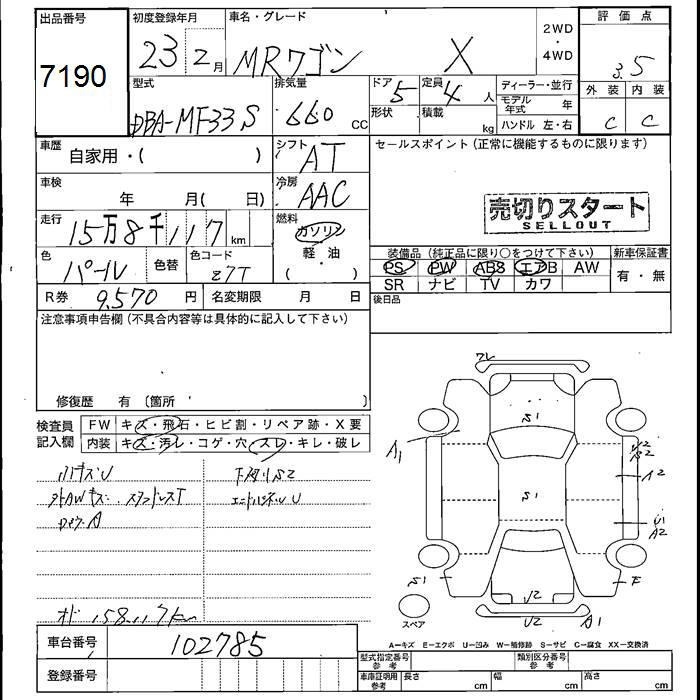 出品番号 初度登録年月 車名・グレード 2WD・4WD 評価点
7190 23 2月 MRワゴン X 3.5
型式 排気量 ドア 5 定員 4人 ディーラー・並行 外装 内装
DBA-MF33S 660 CC 形状 積載 kg モデル年式 年 C C
ハンドル 左・右
車歴 自家用・( ) シフト AT セールスポイント(正常に機能するものに限ります)
車検 年 月( 日) 冷房 AAC
売切りスタート
SELLOUT
走行 15万8千117km 燃料 ガソリン
軽・油
( )
色 パール 色替 色コード Z7T
装備品(純正品に限り○をつけて下さい) 新車保証書
PS PW ABS エアB AW 有・無
SR ナビ TV カワ
R券 9,570円 名変期限 月 日 後日品
注意事項申告欄(不具合内容等は具体的に記入して下さい)
修復歴 有 〔箇所 〕
検査員記入欄 FW キズ・飛石・ヒビ割・リペア跡・X要
内装 キズ・汚レ・コゲ・穴・スレ・キレ・破レ
158,117km
車台番号 102785
登録番号
A1
S1
S1
A2
U1
A2
S1
F
U2
A1
スペア
A―キズ E―エクボ U―凹み W―補修跡 S―サビ C―腐食 XX―交換済
型式指定番号 参考 類別区分番号 参考
車庫証明用 参考 長さ cm 幅 cm 高さ cm